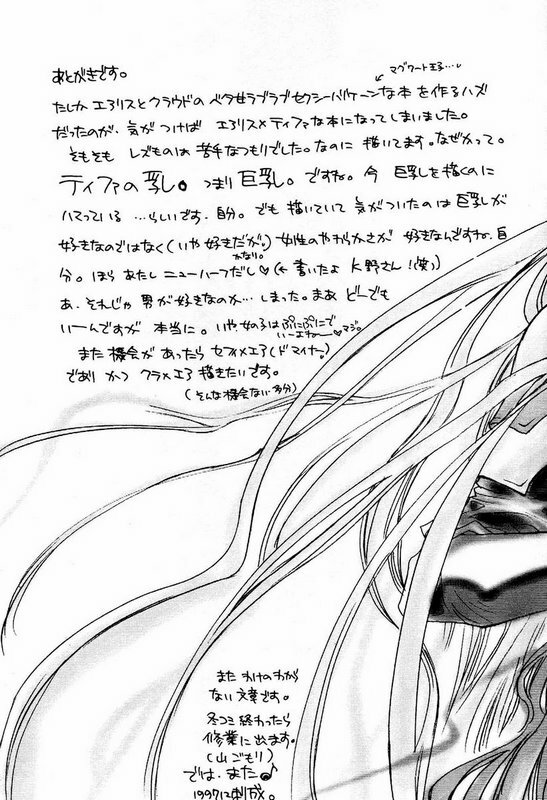 あとがきです。
マグワート王子…
たしか エアリスとクラウドの ベタ甘ラブラブセクシーバケーンな本 を作るハズ
だったのが、気がつけば エアリス×ティファな本になってしまいました。
そもそも レズものは 苦手なつもりでした。なのに 描いてます。なぜかって。
ティファの乳。つまり 巨乳。ですね。今 巨乳を描くのに
ハマっている …らしいです。自分。でも 描いていて 気がついたのは 巨乳が
好きなのではなく(いや好きだが。)女性のやわらかさが 好きなんですね。自
かなり。
分。ほら あたし ニューハーフだし♡(←書いたよ 野さん!(笑)
あ、それじゃ 男が好きなのか…しまった。まあ どーでも
いーんですが 本当に。いや女の子は ぷにぷにで
いーよねー♡マジ。
また 機会が あったら セフィ×エア(ドマイナー。)
であり かつ クラ×エア 描きたいです。
(そんな機会ない 多分)
また わけのわから
ない 文章です。
冬コミ 終わったら
修業に 出ます。
(山ごもり)
では、また♪